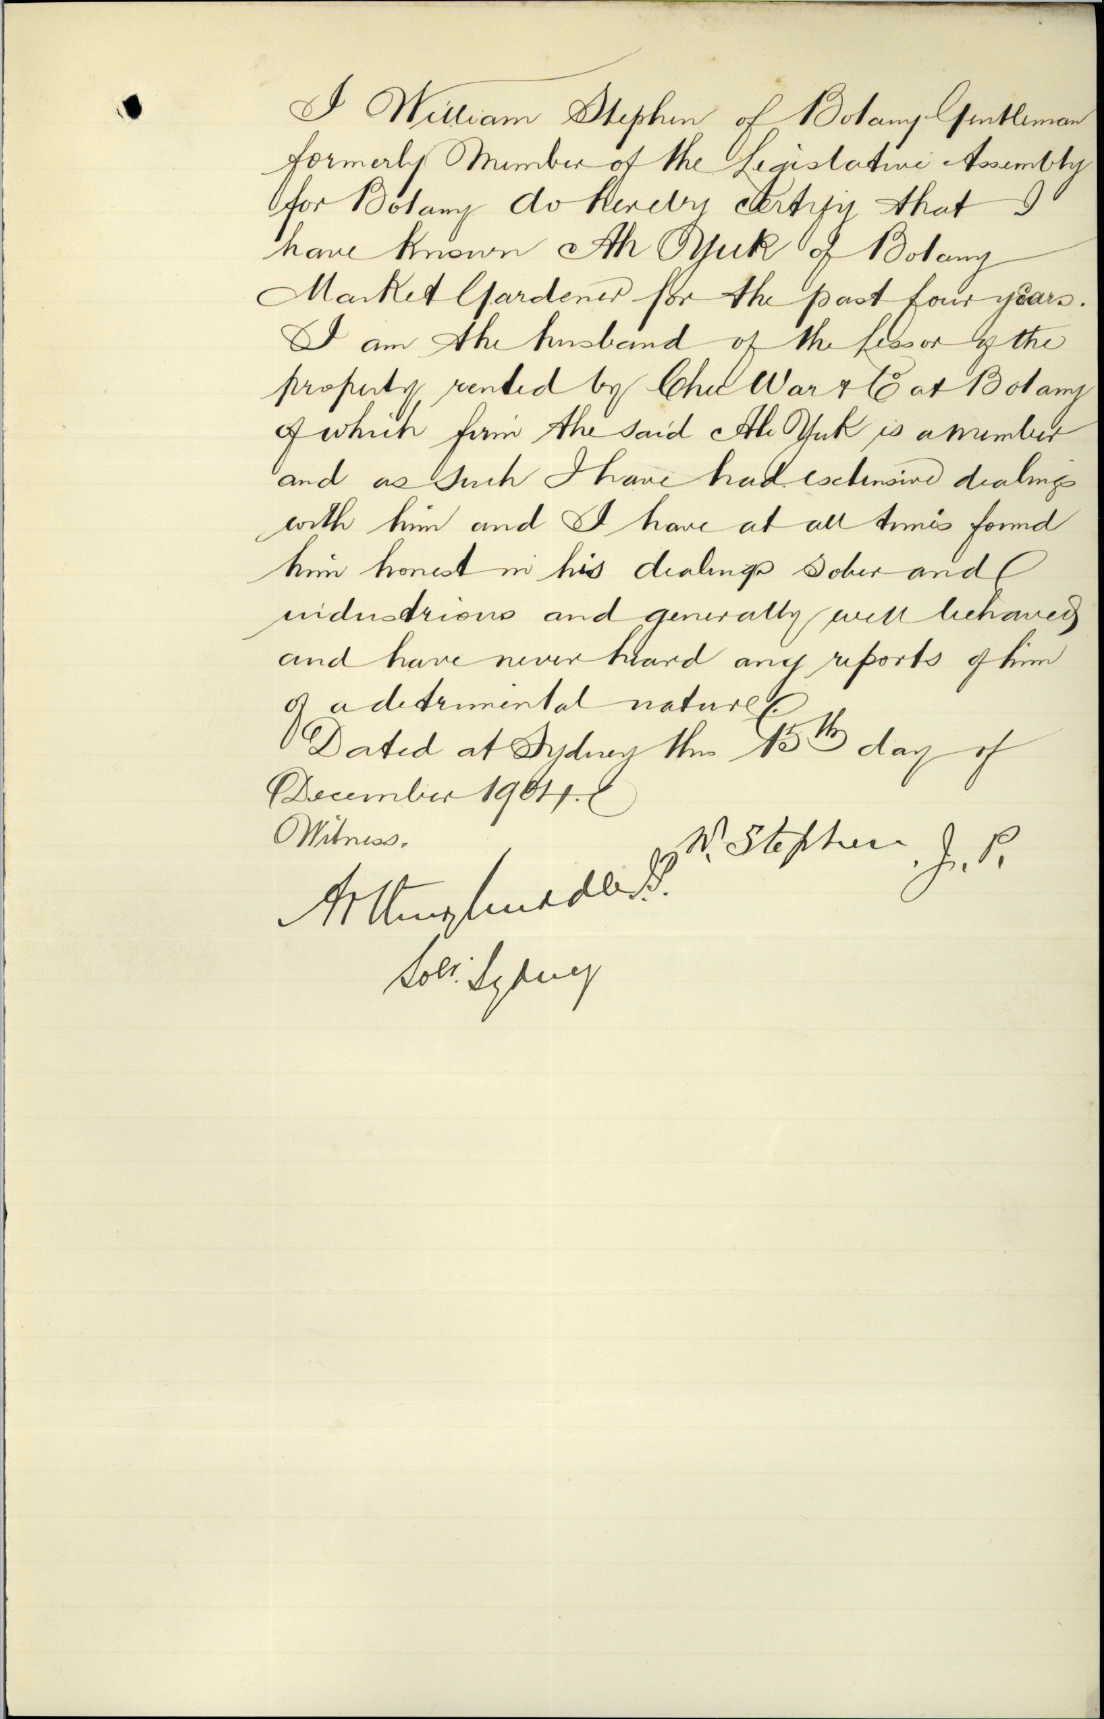 I William Stephen of Botany Gentleman
formerly Member of the Legislative Assembly
for Botany do hereby certify that I
have known Ah Yuk of Botany
Market Gardener for the past four years.
I am the husband of the lessor of the
property rented by Chee War & Co at Botany
of which firm the said Ah Yuk is a member
and as such I have had extensive dealings
with him and I have at all times found
him honest in his dealings sober and
industrious and generally well behaved
and have never heard any reports of him
of a detrimental nature.
Dated at Sydney this 15th day of
December 1904.
Witness.
W. Stephen. J. P.
J.P.
Solr. Sydney